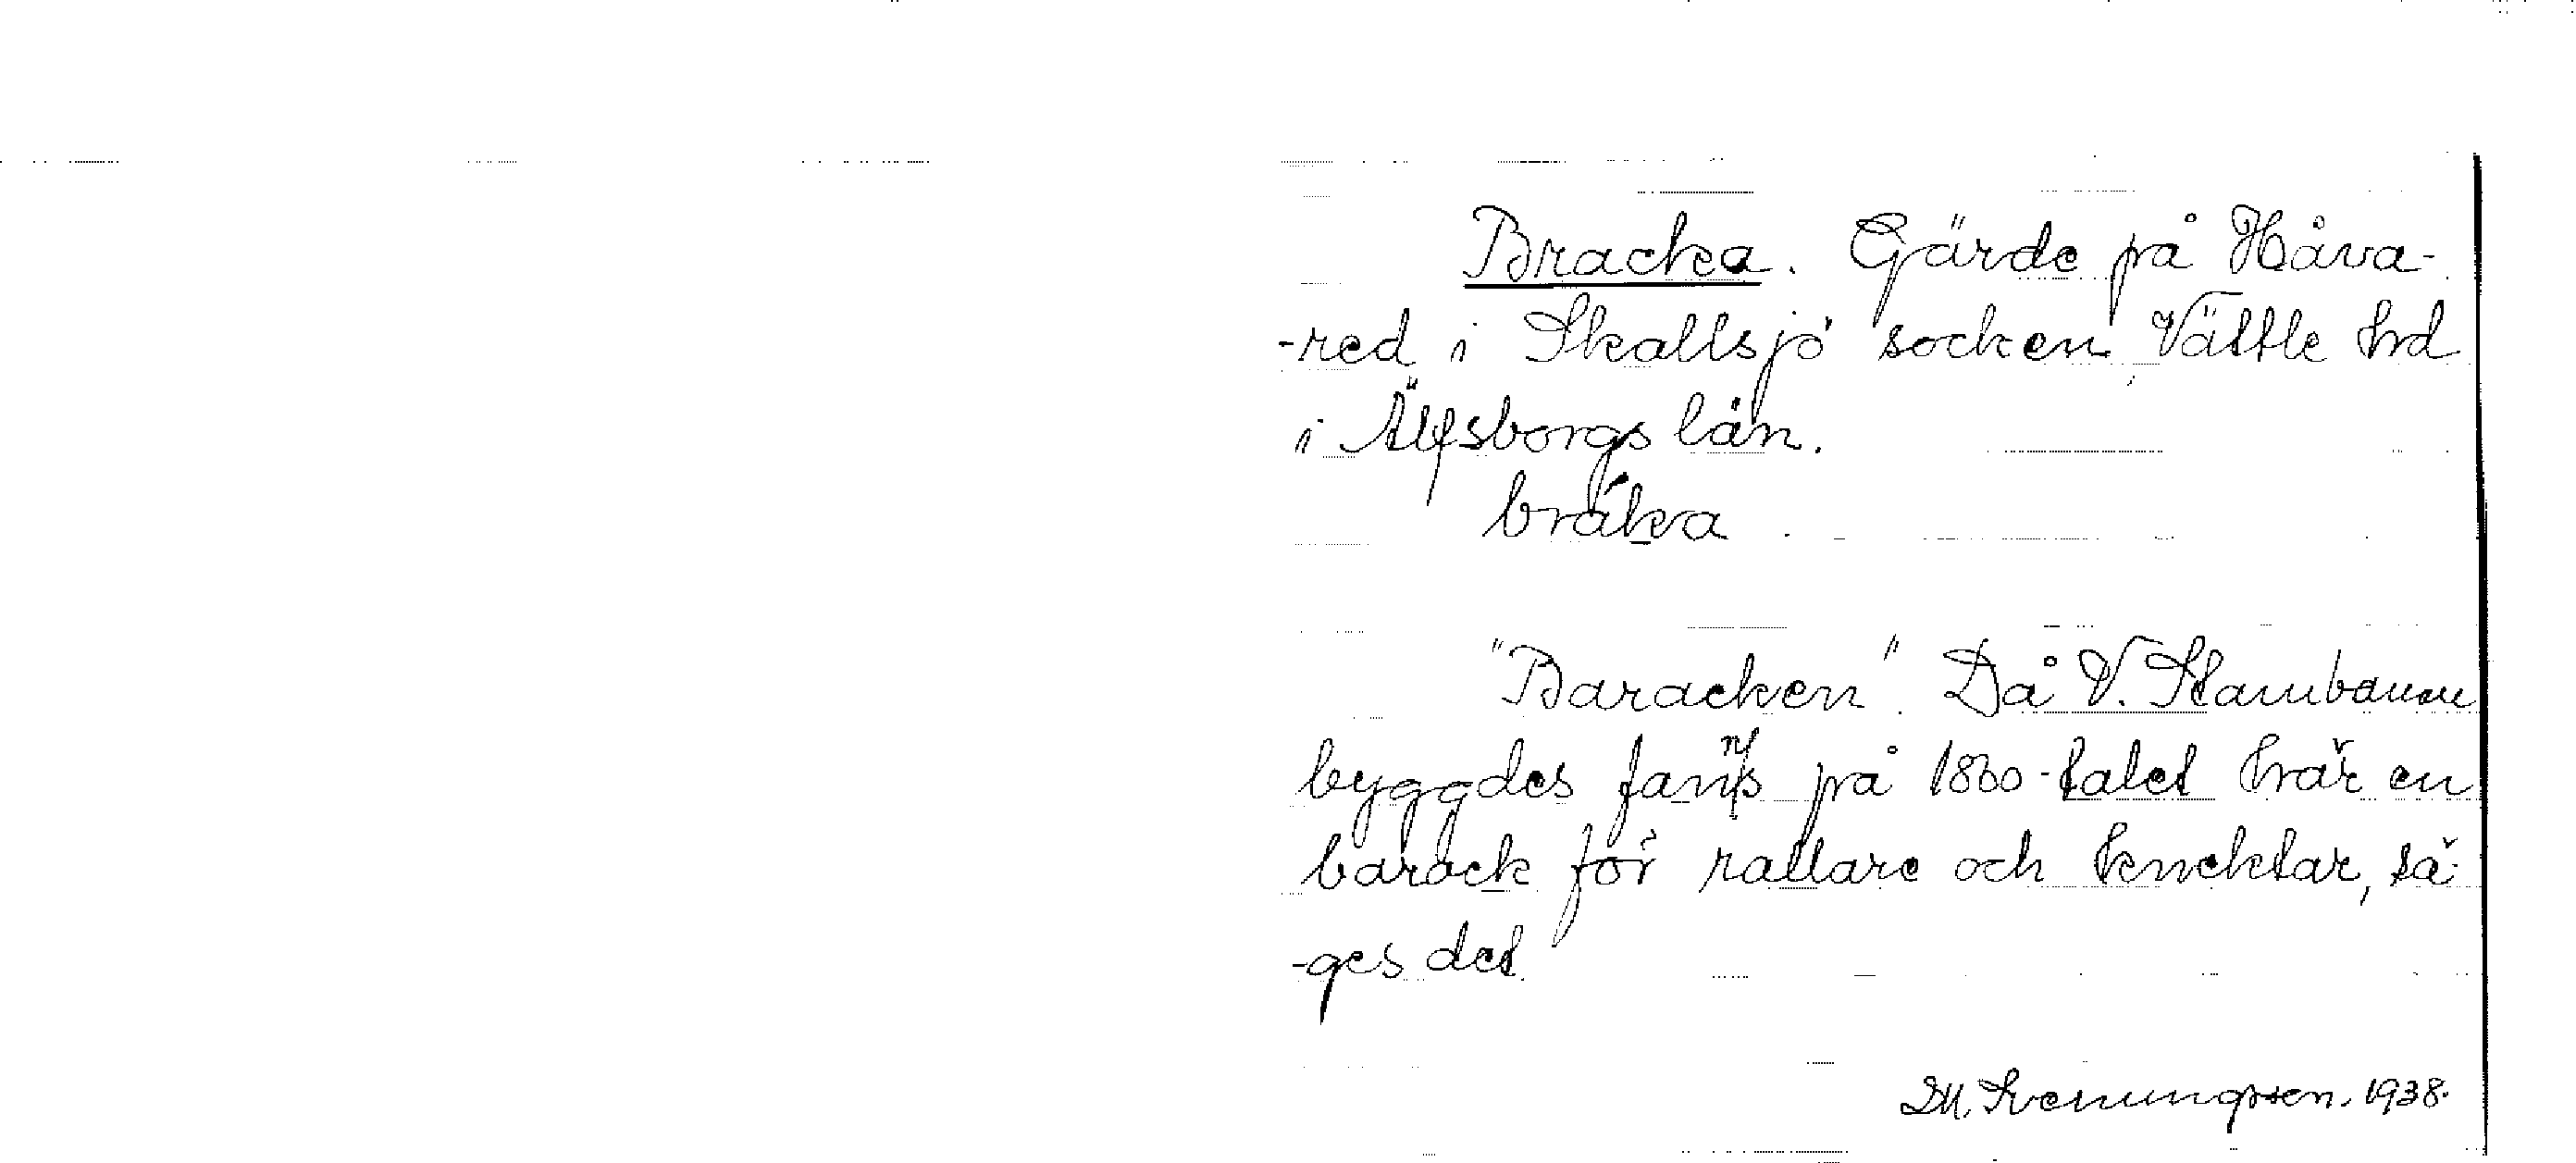 Bracka. Gärde på Håva-
-red i Skallsjö socken, Vättle hrd
i Älfsborgs län.
bráka
"Baracken". Då V. Stambanan
byggdes fanns på 1860-talet här en
barack för rallare och knektar, sä-
-ges det.
D.M. Svenungsson. 1938.